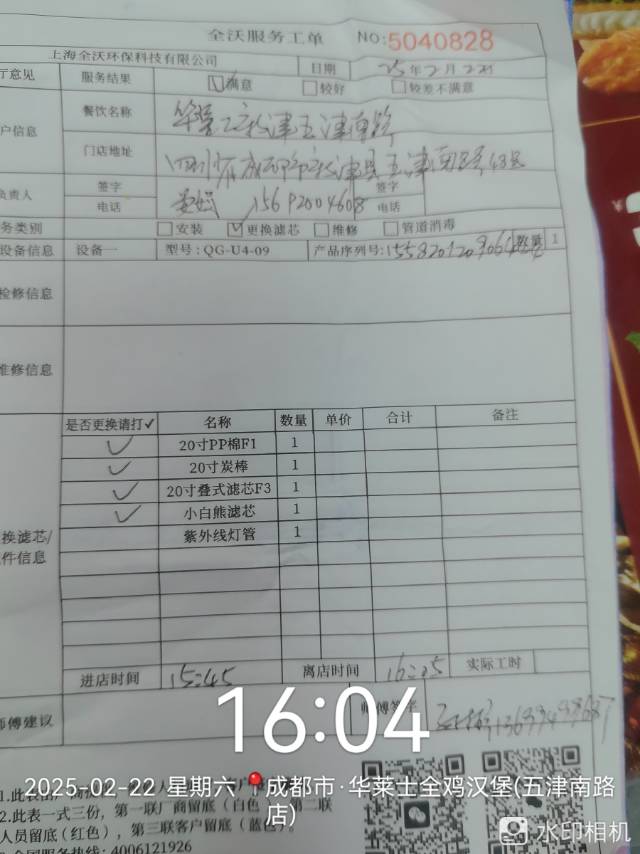 全沃服务工单 NO:5040828
上海全沃环保科技有限公司 日期 25年2月22日
厅意见 服务结果 满意 较好 较差不满意
户信息 餐饮名称 华莱士新津五津南路
门店地址 四川省成都市新津县五津南路48号
负责人 签字 签字
电话 15692004608 电话
务类别 安装 ✓更换滤芯 维修 管道消毒
设备信息 设备一 型号: QG-U4-09 产品序列号: 数量 1
检修信息
维修信息
是否更换请打✓ 名称 数量 单价 合计 备注
✓ 20寸PP棉F1 1
✓ 20寸炭棒 1
✓ 20寸叠式滤芯F3 1
✓ 小白熊滤芯 1
换滤芯/ 紫外线灯管 1
件信息
进店时间 15:45 离店时间 16:05 实际工时
师傅建议 师傅签字
16:04
2025-02-22 星期六 成都市·华莱士全鸡汉堡(五津南路店)
1.此表由
2.此表一式三份，第一联厂商留底（白色 第二联
人员留底（红色），第三联客户留底（蓝色）。
全国服务热线: 4006121926
水印相机